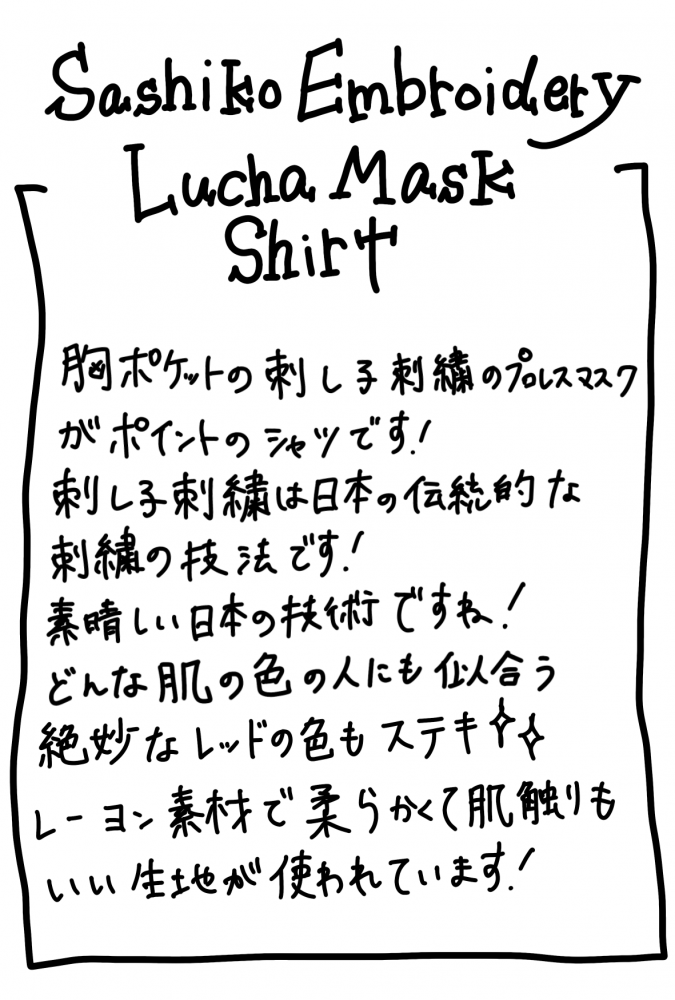 Sashiko Embroidery
Lucha Mask
Shirt
胸ポケットの刺し子刺繍のプロレスマスク
がポイントのシャツです!
刺し子刺繍は日本の伝統的な
刺繍の技法です!
素晴しい日本の技術ですね!
どんな肌の色の人にも似合う
絶妙なレッドの色もステキ✨
レーヨン素材で柔らかくて肌触りも
いい生地が使われています!